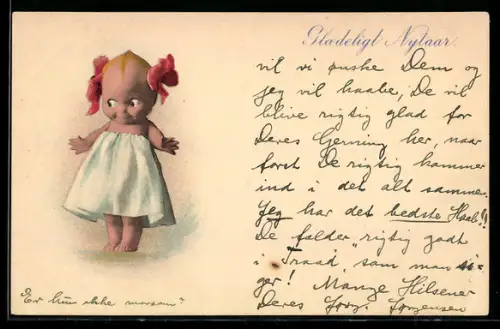 Glædeligt Nytaar.
vil vi ønske Dem og
jeg vil haabe, De vil
blive rigtig glad for
Deres Gerning her, naar
først De rigtig kommer
ind i det alt sammen.
Jeg har det bedste Haab!!
De falder „rigtig godt
i Traad, som man si-
ger! Mange Hilsener
Deres Jørgensen
Er hun ikke morsom?